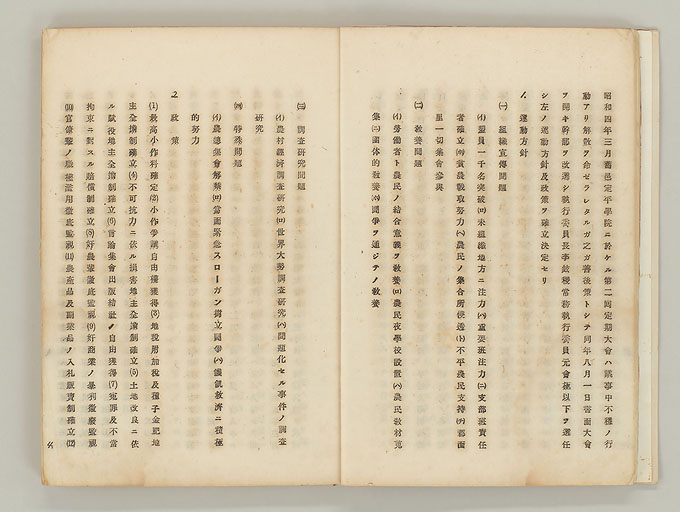 昭和四年三月舊邑定平學院ニ於ケル第二回定期大會ハ議事中不穩ノ行
動アリ解散ヲ命ゼラレタルガ之ガ善後策トシテ同年八月一日書面大會
ヲ開キ幹部ヲ改選シ執行委員長李敏稷常務執行委員元會極以下ヲ選任
シ左ノ運動方針及政策ヲ確立決定セリ
1. 運動方針
㈠ 組織宣傳問題
(イ)盟員一千名突破(ロ)未組織地方ニ注力(ハ)重要班注力(ニ)支部班責任
者確立(ホ)貧農獲取努力(ヘ)農民ノ集合所侵透(ト)不平農民支持(チ)郡面
里一切集會參與
㈡ 敎養問題
(イ)勞働者ト農民ノ結合意義ヲ敎養(ロ)農民夜學校設置(ハ)農民敎材蒐
集(ニ)團体的敎養(ホ)鬪爭ヲ通ジテノ敎養
㈢ 調査硏究問題
(イ)農村經濟調査硏究(ロ)世界大勢調査硏究(ハ)問題化セル事件ノ調査
硏究
㈣ 特殊問題
(イ)農總集會解禁(ロ)當面緊急スローガン樹立鬪爭(ハ)饑飢救濟ニ積極
的努力
2. 政策
(1)最高小作料確定(2)小作爭議自由權獲得(3)地稅附加稅及種子金肥地
主全擔制確立(4)不可抗力ニ依ル損害地主全擔制確立(5)土地改良ニ依
ル賦役地主全擔制確立(6)言論集會出版結社ノ自由獲得(7)寃罪及不當
拘束ニ對スル賠償制確立(8)奸農輩徹底監視(9)奸商業ノ暴利徹底監視
(10)官僚輩ノ職權濫用徹底監視(11)農產品及副業品ノ入札販賣制確立(12)